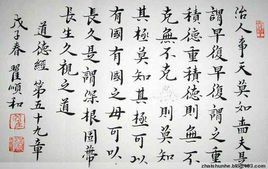 治人事天莫如嗇夫是
謂早復早復謂之重
積德重積德則無不
克無不克則莫知
其極莫知其極可以
有國有國之母可以
長久是謂深根固蒂
長生久視之道
道德經第五十九章
戊子春 瞿順和